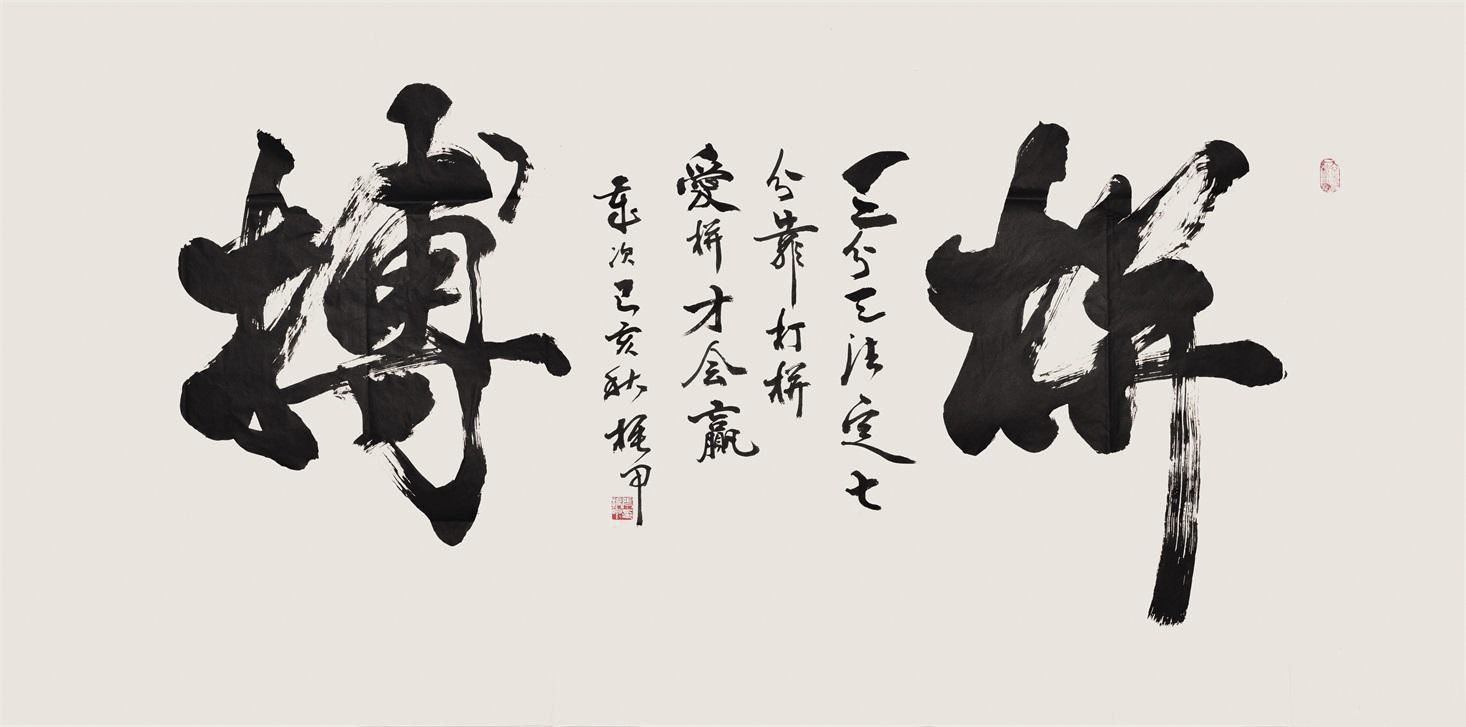 拼
三分天注定七
分靠打拼
愛拼才会赢
歲次己亥秋甲
搏